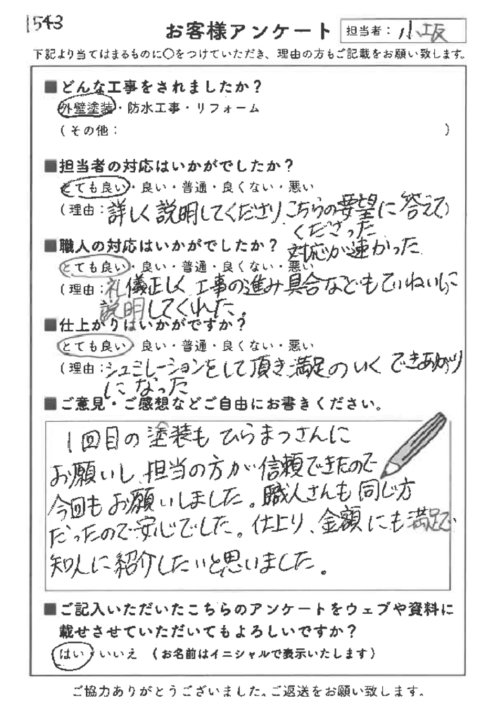 1543
お客様アンケート 担当者：小坂
下記より当てはまるものに〇をつけていただき、理由の方もご記載をお願い致します。
■どんな工事をされましたか？
外壁塗装・防水工事・リフォーム
（その他： ）
■担当者の対応はいかがでしたか？
とても良い・良い・普通・良くない・悪い
（理由：詳しく説明してくださり、こちらの要望に答えて
くださった
対応が速かった
■職人の対応はいかがでしたか？
とても良い・良い・普通・良くない・悪い
（理由：礼儀正しく、工事の進み具合などもていねいに
説明してくれた。
■仕上がりはいかがですか？
とても良い・良い・普通・良くない・悪い
（理由：シュミレーションをして頂き満足のいくできあがり
になった
■ご意見・ご感想などご自由にお書きください。
1回目の塗装もひらまつさんに
お願いし、担当の方が信頼できたので
今回もお願いしました。職人さんも同じ方
だったので安心でした。仕上り、金額にも満足で
知人に紹介したいと思いました。
■ご記入いただいたこちらのアンケートをウェブや資料に
載せさせていただいてもよろしいですか？
はい・いいえ （お名前はイニシャルで表示いたします）
ご協力ありがとうございました。ご返送をお願い致します。